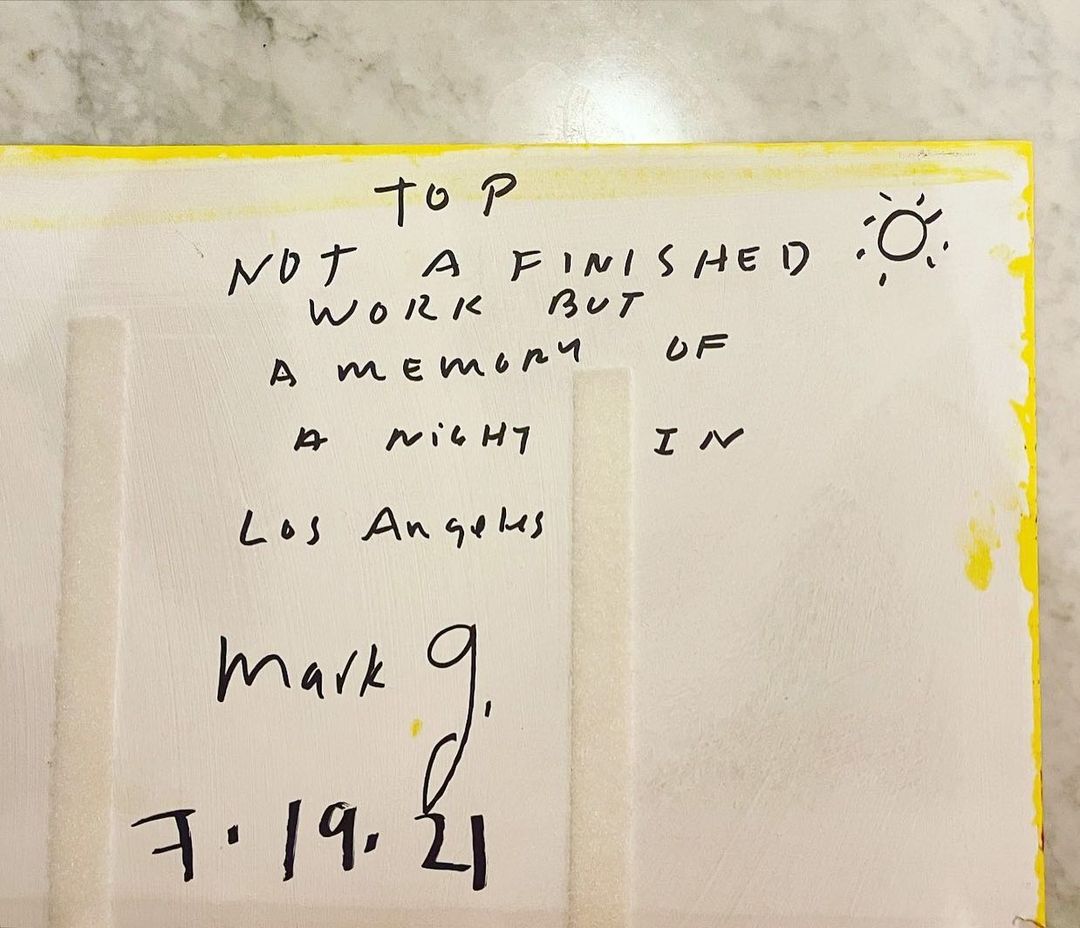 TOP
NOT A FINISHED
WORK BUT
A MEMORY OF
A NiGHT IN
Los Angeles
Mark g.
7.19.21